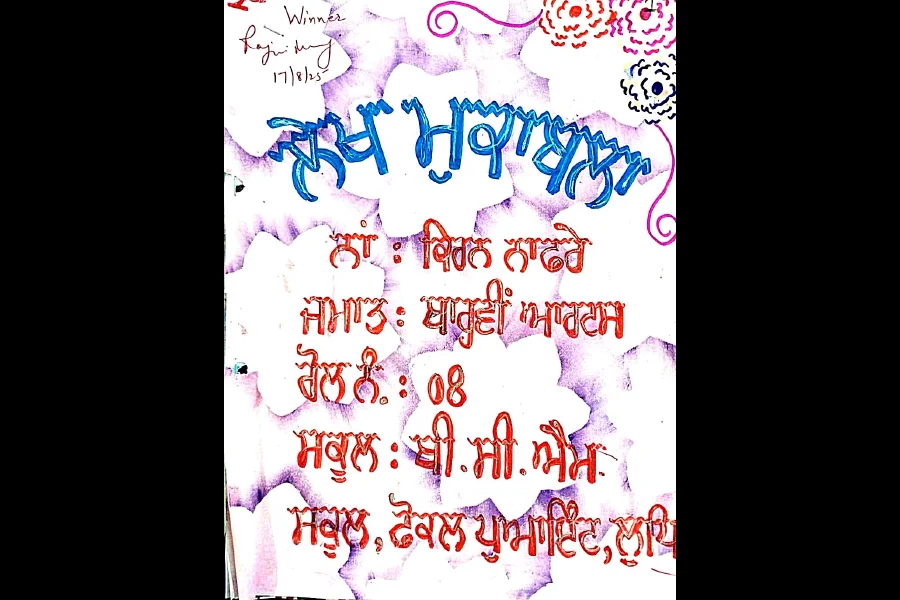 Winner
17/8/25
ਲੇਖ ਮੁਕਾਬਲਾ
ਨਾਂ : ਕਿਰਨ ਨਾਫਰੇ
ਜਮਾਤ : ਬਾਰ੍ਹਵੀਂ ਆਰਟਸ
ਰੋਲ ਨੰ. : 08
ਸਕੂਲ : ਬੀ.ਸੀ.ਐਮ.
ਸਕੂਲ, ਫੋਕਲ ਪੁਆਇੰਟ, ਲੁਧਿ